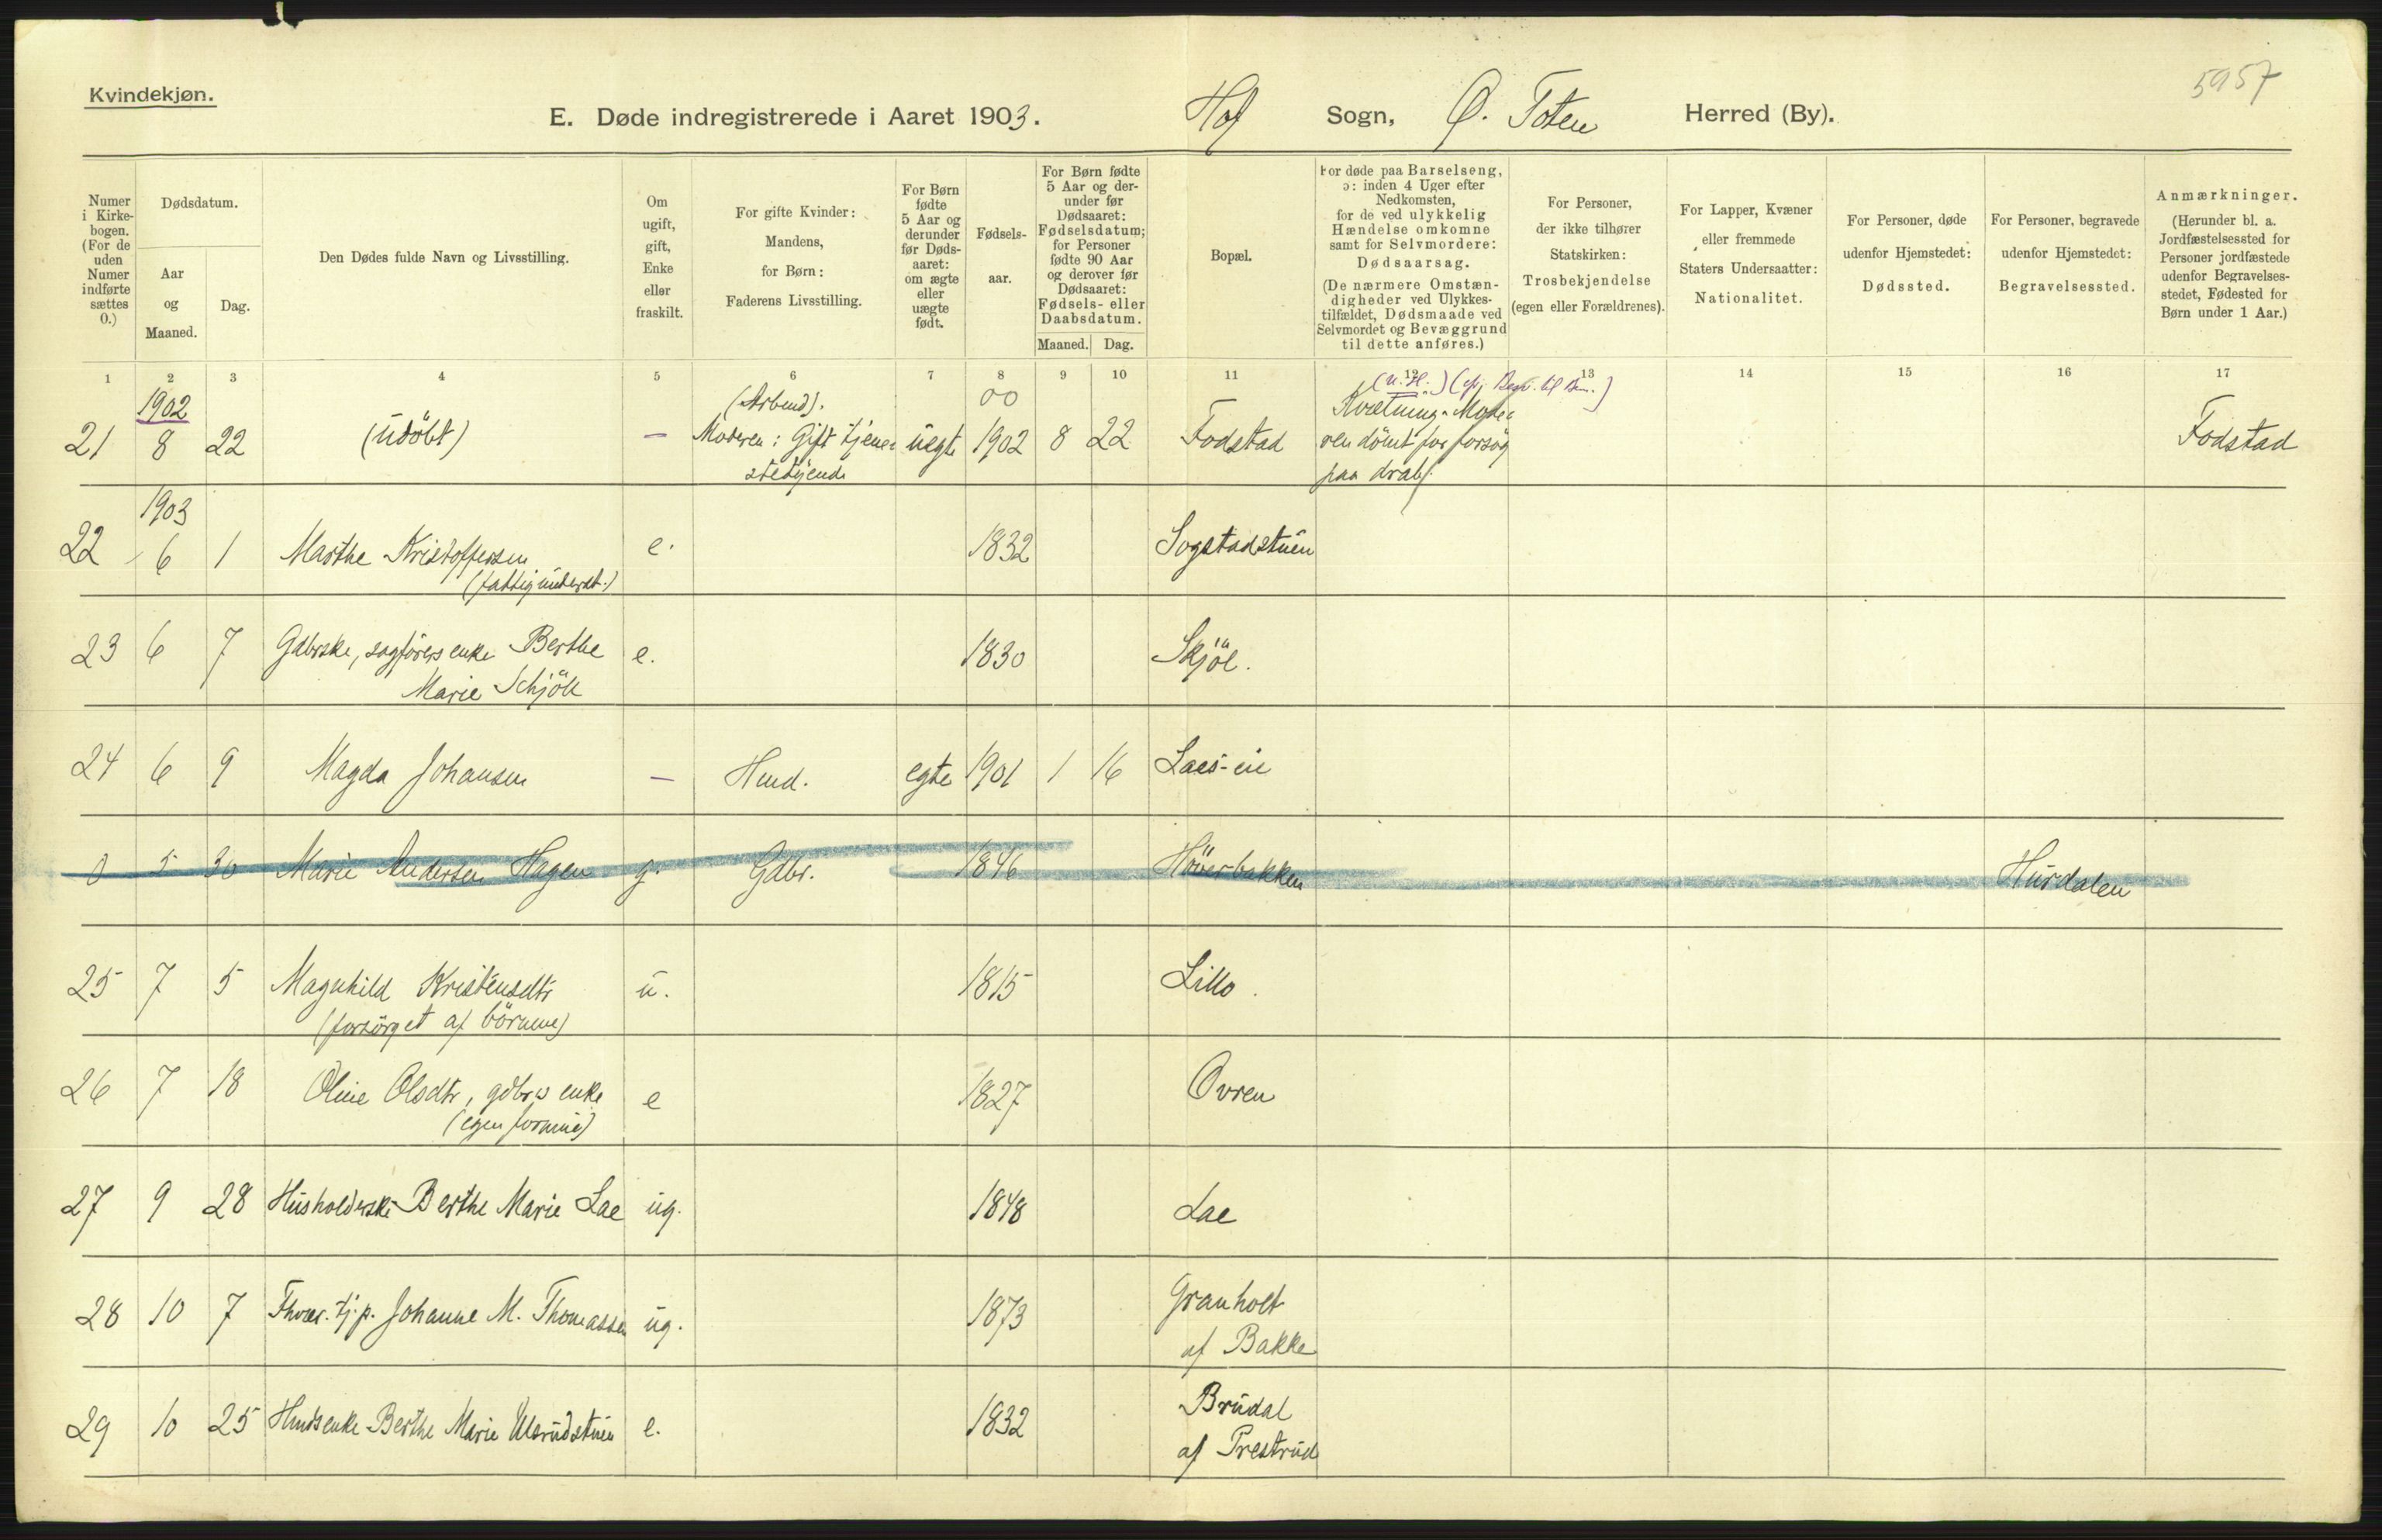 Kvindekjøn.
5957
E. Døde indregistrerede i Aaret 1903. Hof Sogn, Ø. Toten Herred (By).
Numer i Kirke-bogen. (For de uden Numer indførte sættes 0.)
Dødsdatum.
Aar og Maaned.
Dag.
Den Dødes fulde Navn og Livsstilling.
Om ugift, gift, Enke eller fraskilt.
For gifte Kvinder: Mandens, for Børn: Faderens Livsstilling.
For Børn fødte 5 Aar og derunder før Døds-aaret: om ægte eller uægte født.
Fødsels-aar.
For Børn fødte 5 Aar og der-under før Dødsaaret: Fødselsdatum; for Personer fødte 90 Aar og derover før Dødsaaret: Fødsels- eller Daabsdatum.
Maaned. Dag.
Bopæl.
For døde paa Barselseng, ɔ: inden 4 Uger efter Nedkomsten, for de ved ulykkelig Hændelse omkomne samt for Selvmordere: Dødsaarsag. (De nærmere Omstæn-digheder ved Ulykkes-tilfældet, Dødsmaade ved Selvmordet og Bevæggrund til dette anføres.)
For Personer, der ikke tilhører Statskirken: Trosbekjendelse (egen eller Forældrenes).
For Lapper, Kvæner eller fremmede Staters Undersaatter: Nationalitet.
For Personer, døde udenfor Hjemstedet: Dødssted.
For Personer, begravede udenfor Hjemstedet: Begravelsessted.
Anmærkninger. (Herunder bl. a. Jordfæstelsessted for Personer jordfæstede udenfor Begravelses-stedet, Fødested for Børn under 1 Aar.)
1 2 3 4 5 6 7 8 9 10 11 12 13 14 15 16 17
1902 (Arbeid). 00 (U. H.)
21 8 22 (udöbt) — Moderen: Gift tjene- uegte 1902 8 22 Fodstad Kvælning. Mode- Fodstad
stetyende ren dömt for forsög
paa drab.
1903
22 6 1 Marthe Kristoffersen e. 1832 Sogstadstuen
(fattigunderst.)
23 6 7 Gdbrske, sagförers enke Berthe e. 1830 Skjöl.
Marie Schjöll
24 6 9 Magda Johansen — Hmd. egte 1901 1 16 Laes-eie
0 5 30 Marie Andersen Hagen g. Gdbr. 1846 Höverbakken Hurdalen
25 7 5 Magnhild Kristensdtr u. 1815 Lillo.
(forsörget af börnene)
26 7 18 Oline Olsdtr, gdbr.s enke e 1827 Ovren
(egen formue)
27 9 28 Husholderske Berthe Marie Lae ug. 1848 Lae
28 10 7 Fhvær. tj. p. Johanne M. Thomassen ug. 1873 Granholt
af Bakke
29 10 25 Hmdsenke Berthe Marie Ulsrudstuen e. 1832 Brudal
af Prestrud